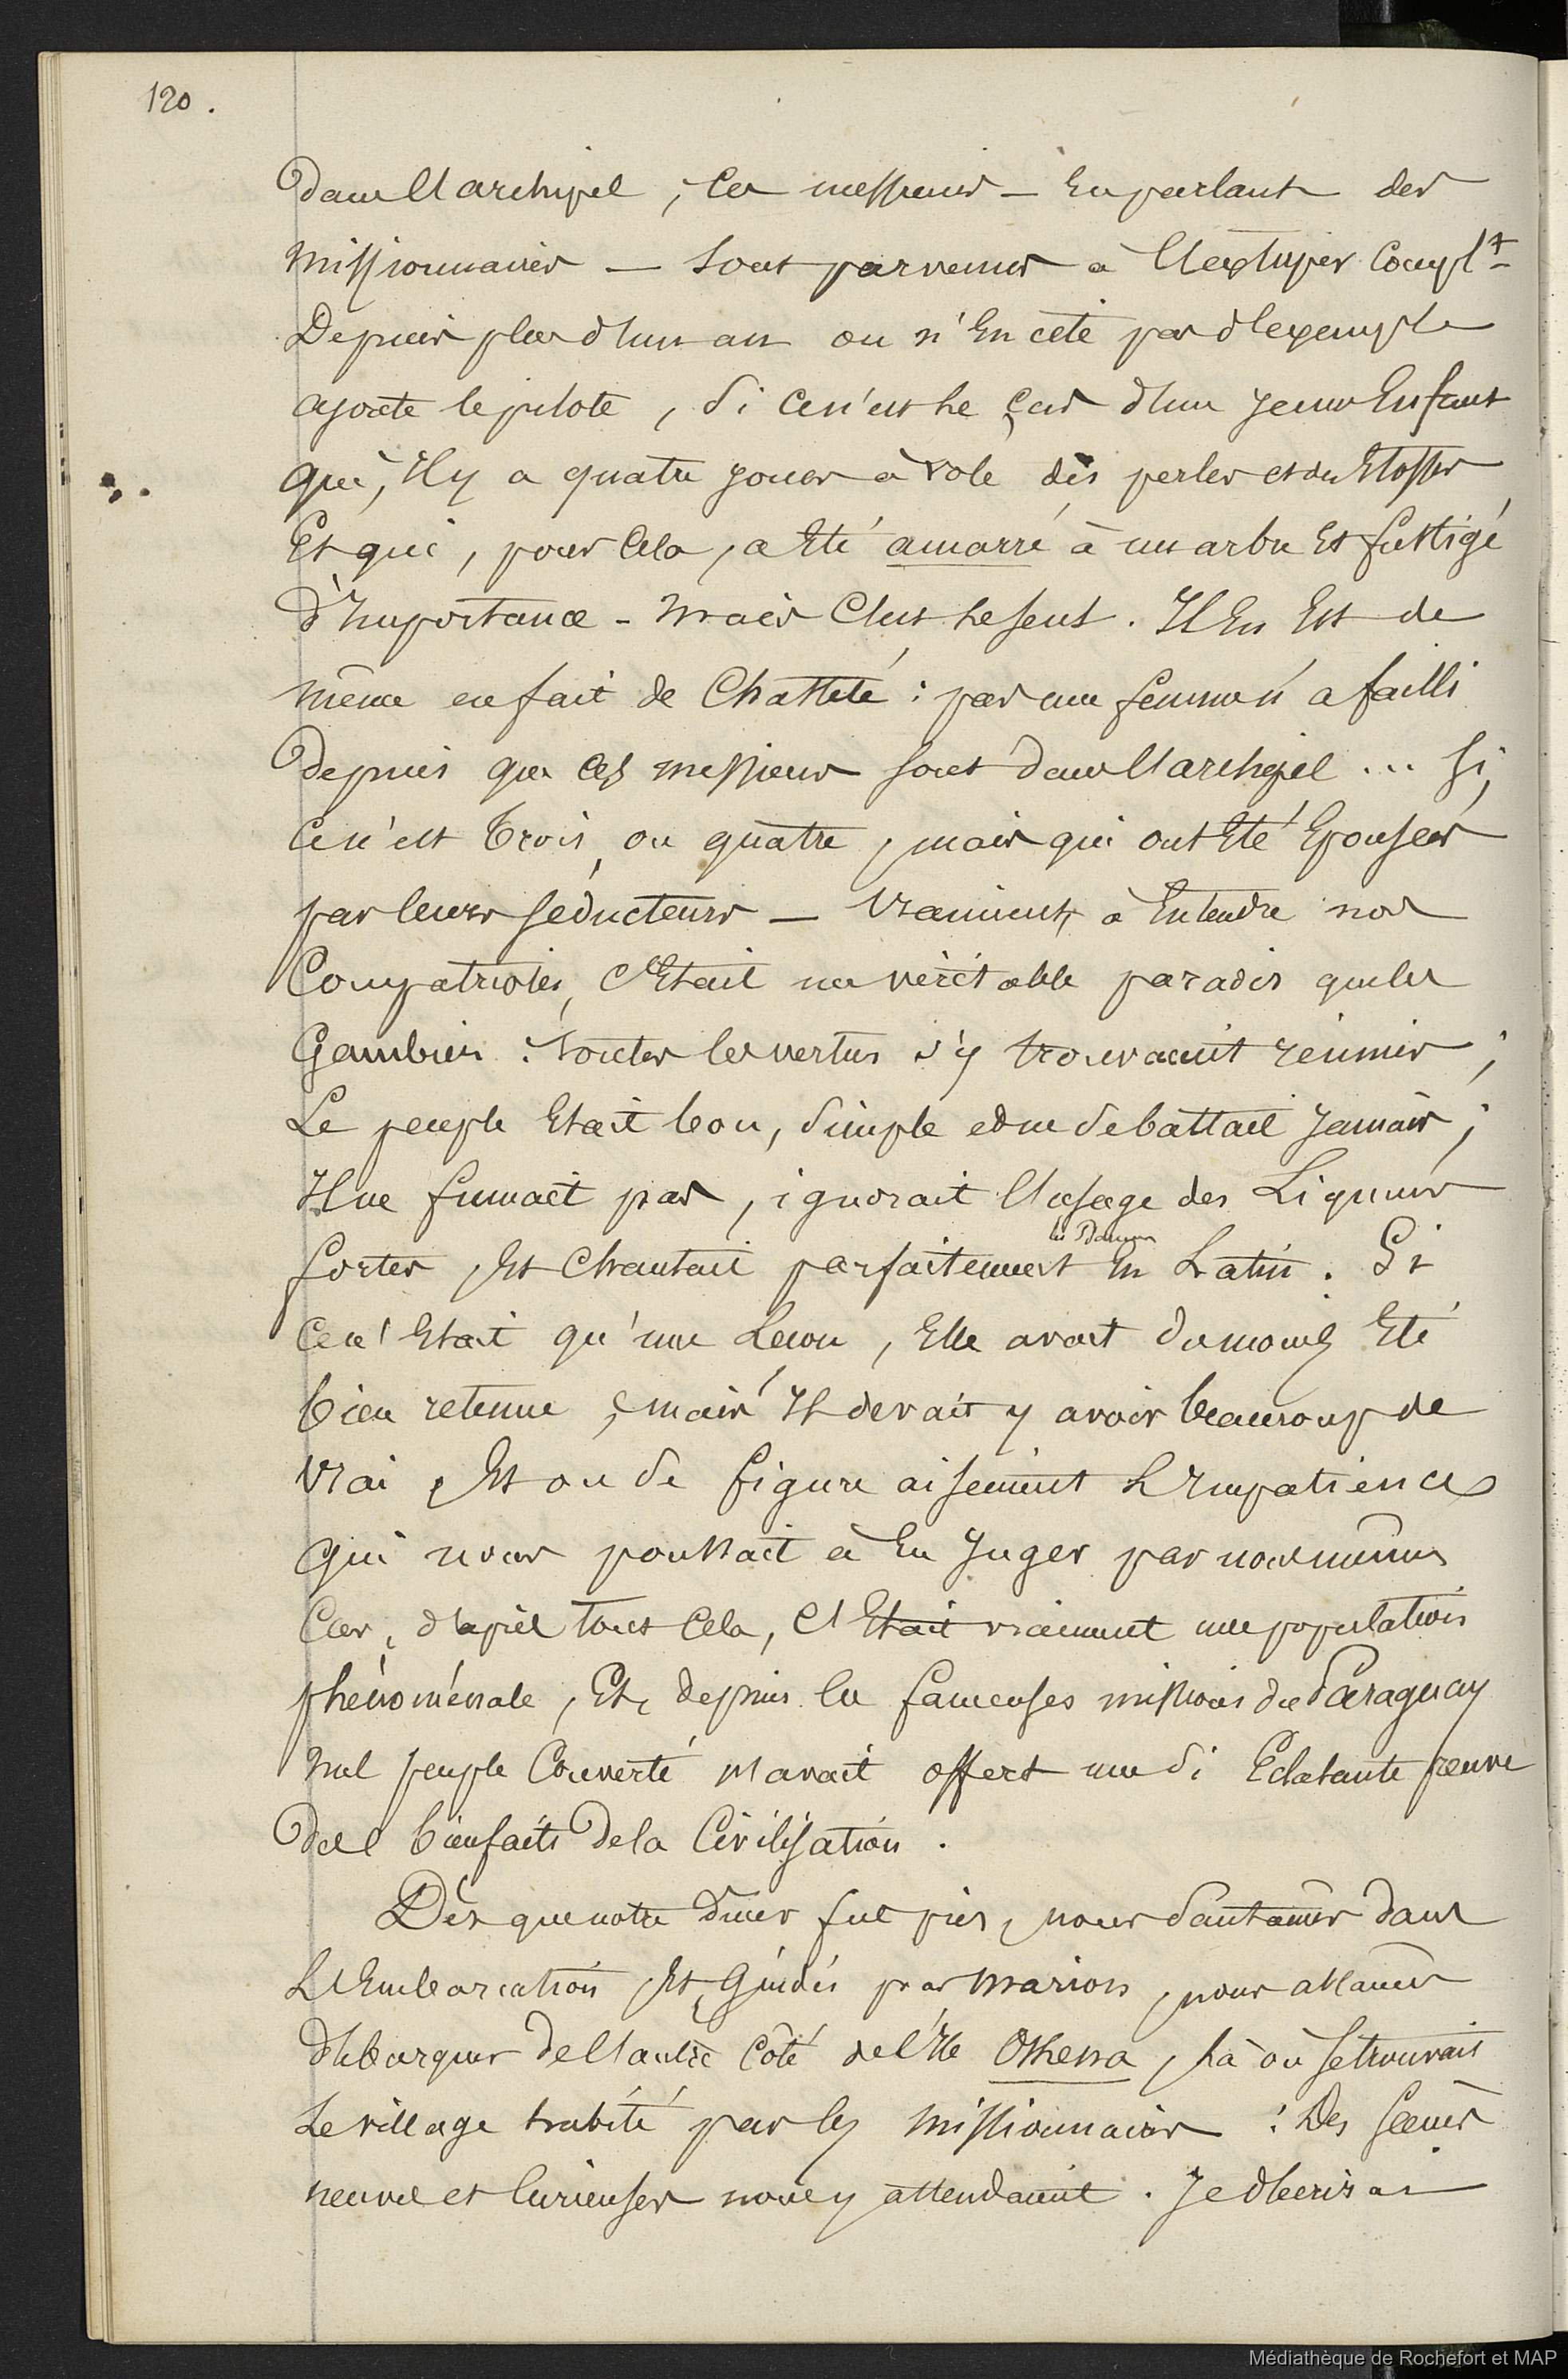 120.
dans l'archipel, ces messieurs — En parlant des
missionnaires — sont parvenus à l'extirper Compl.t
Depuis plus d'un an on n'En cite pas d'exemple
ajoute le pilote, si ce n'est le cas d'un jeune Enfant
qui, Il y a quatre jours a volé des perles et des Etoffes
Et qui, pour Cela, a Eté amarré à un arbre Et fustigé
d'Importance - mais C'est le seul. Il En Est de
même en fait de Chasteté : pas une femme n'a failli
depuis que ces messieurs sont dans l'archipel ... si,
ce n'est trois ou quatre, mais qui ont Eté Epousées
par leurs séducteurs — Vraiment, à Entendre nos
Compatriotes, c'Etait un véritable paradis que les
Gambier : toutes les vertus s'y trouvaient réunies ;
Le peuple Etait bon, simple et ne se battait jamais ;
Il ne fumait pas, ignorait l'usage des Liqueurs
fortes, Et Chantait parfaitement En Latin. Si
ce n'Etait qu'une Leçon, Elle avait du moins Eté
bien retenue, mais Il devait y avoir beaucoup de
vrai, Et on se figure aisément L'Impatience
qui nous poussait à En Juger par nous mêmes
Car, d'après tout Cela, C'Etait vraiment une population
phénoménale, Et, depuis les fameuses missions du Paraguay
nul peuple Converti n'avait offert une si Eclatante preuve
des bienfaits de la Civilisation.
Dès que notre diner fut pris, nous sautames dans
L'Embarcation, Et, Guidés par Marion, nous allames
débarquer de l'autre Côté de l'Ile Okhena, là où se trouvait
Le village habité par les missionnaires : Des scènes
neuves et Curieuses nous y attendaient. Je décrirai
Médiathèque de Rochefort et MAP